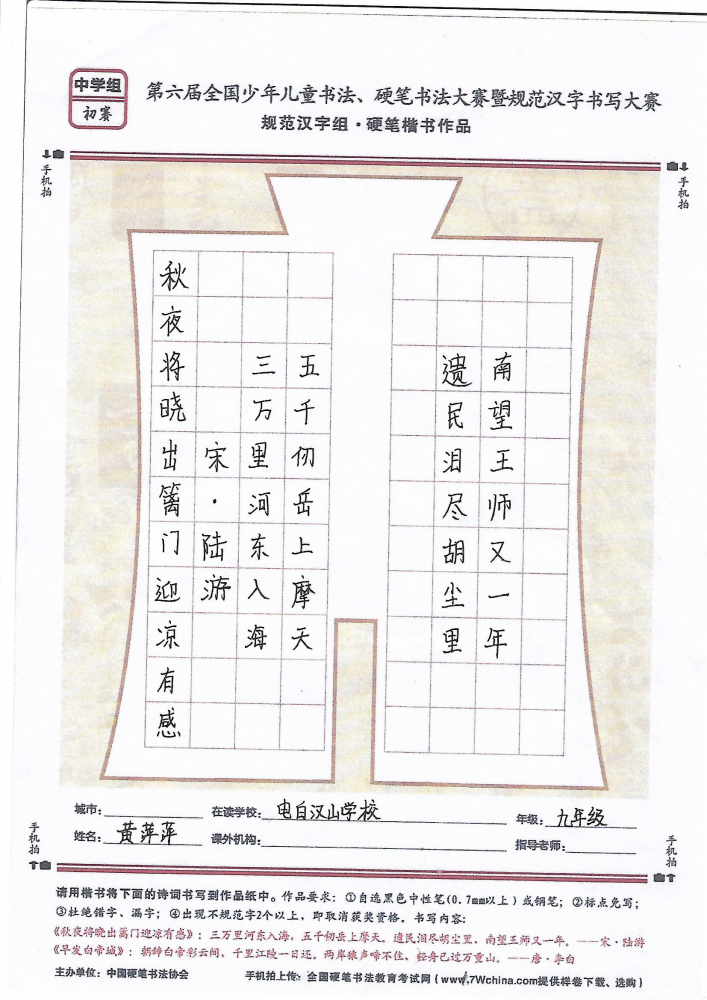 中学组
初赛
第六届全国少年儿童书法、硬笔书法大赛暨规范汉字书写大赛
规范汉字组·硬笔楷书作品
手机拍
手机拍
秋夜将晓出篱门迎凉有感
宋·陆游
三万里河东入海
五千仞岳上摩天
遗民泪尽胡尘里
南望王师又一年
城市: 在读学校: 电白汉山学校 年级: 九年级
姓名: 黄萍萍 课外机构: 指导老师:
手机拍
手机拍
请用楷书将下面的诗词书写到作品纸中。作品要求：①自选黑色中性笔(0.7mm以上)或钢笔；②标点免写；
③杜绝错字、漏字；④出现不规范字2个以上，即取消获奖资格。书写内容：
《秋夜将晓出篱门迎凉有感》：三万里河东入海，五千仞岳上摩天。遗民泪尽胡尘里，南望王师又一年。——宋·陆游
《早发白帝城》：朝辞白帝彩云间，千里江陵一日还。两岸猿声啼不住，轻舟已过万重山。——唐·李白
主办单位：中国硬笔书法协会 手机拍上传：全国硬笔书法教育考试网(www.7Wchina.com提供样卷下载、选购)